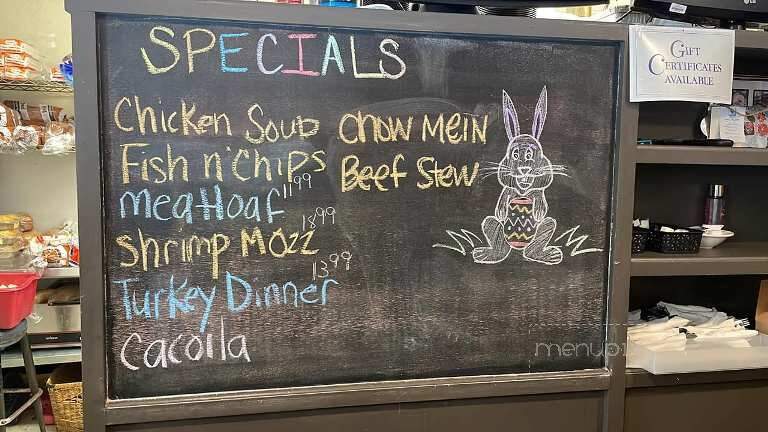 SPECIALS
Chicken Soup
Fish n' Chips
11.99
meatloaf
18.99
Shrimp Mozz
13.99
Turkey Dinner
cacoila
Chow Mein
Beef Stew
Gift
Certificates
Available
menupix